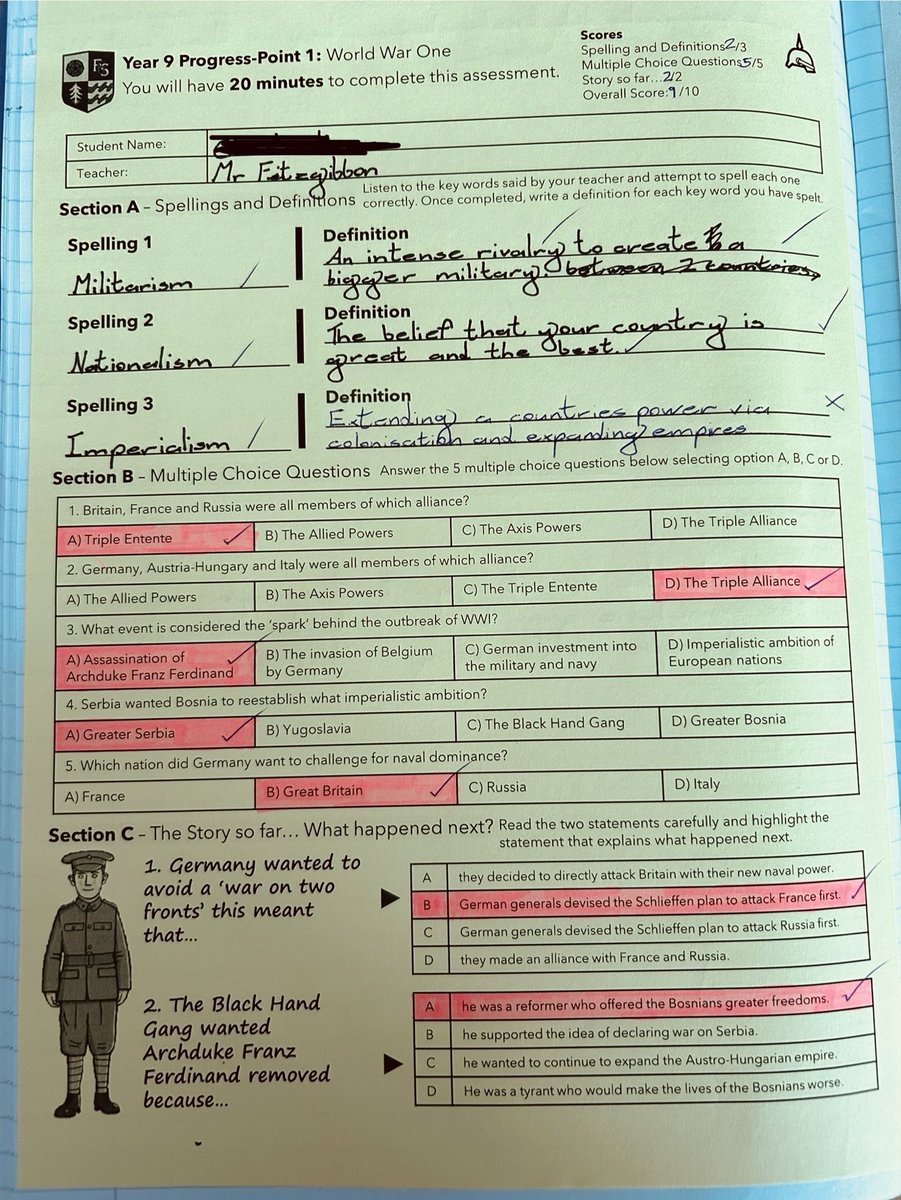 FS
Year 9 Progress-Point 1: World War One
You will have 20 minutes to complete this assessment.
Scores
Spelling and Definitions 2/3
Multiple Choice Questions 5/5
Story so far... 2/2
Overall Score: 9/10
Student Name:
Teacher: Mr Fitzgibbon
Section A – Spellings and Definitions
Listen to the key words said by your teacher and attempt to spell each one
correctly. Once completed, write a definition for each key word you have spelt.
Spelling 1
Militarism
Definition
An intense rivalry to create a
bigger military between 2 countries
Spelling 2
Nationalism
Definition
The belief that your country is
great and the best.
Spelling 3
Imperialism
Definition
Extending a countries power via
colonisation and expanding empires
Section B – Multiple Choice Questions
Answer the 5 multiple choice questions below selecting option A, B, C or D.
1. Britain, France and Russia were all members of which alliance?
A) Triple Entente
B) The Allied Powers
C) The Axis Powers
D) The Triple Alliance
2. Germany, Austria-Hungary and Italy were all members of which alliance?
A) The Allied Powers
B) The Axis Powers
C) The Triple Entente
D) The Triple Alliance
3. What event is considered the ‘spark’ behind the outbreak of WWI?
A) Assassination of
Archduke Franz Ferdinand
B) The invasion of Belgium
by Germany
C) German investment into
the military and navy
D) Imperialistic ambition of
European nations
4. Serbia wanted Bosnia to reestablish what imperialistic ambition?
A) Greater Serbia
B) Yugoslavia
C) The Black Hand Gang
D) Greater Bosnia
5. Which nation did Germany want to challenge for naval dominance?
A) France
B) Great Britain
C) Russia
D) Italy
Section C – The Story so far... What happened next?
Read the two statements carefully and highlight the
statement that explains what happened next.
1. Germany wanted to
avoid a ‘war on two
fronts’ this meant
that...
A they decided to directly attack Britain with their new naval power.
B German generals devised the Schlieffen plan to attack France first.
C German generals devised the Schlieffen plan to attack Russia first.
D they made an alliance with France and Russia.
2. The Black Hand
Gang wanted
Archduke Franz
Ferdinand removed
because...
A he was a reformer who offered the Bosnians greater freedoms.
B he supported the idea of declaring war on Serbia.
C he wanted to continue to expand the Austro-Hungarian empire.
D He was a tyrant who would make the lives of the Bosnians worse.